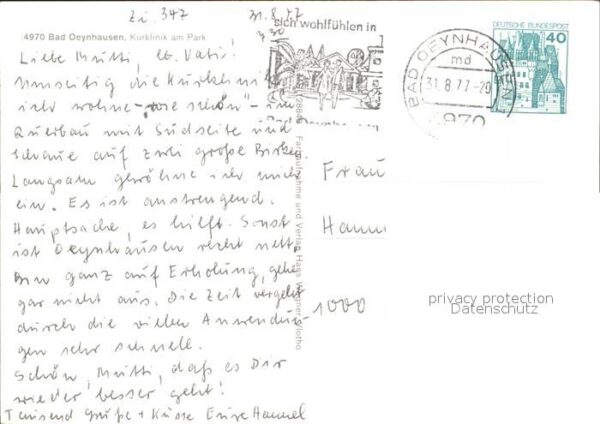 Zi. 347
31.8.77
4970 Bad Oeynhausen, Kurklinik am Park
Liebe Mutti, lb. Vati!
Umseitig die Kurklinik
ich wohne - wie schön - im
Querbau mit Südseite und
schaue auf zwei große Birken.
Langsam gewöhne ich mich
ein. Es ist anstrengend.
Hauptsache, es hilft. Sonst
ist Oeynhausen recht nett.
Bin ganz auf Erholung, gehe
gar nicht aus. Die Zeit vergeht
durch die vielen Anwendun-
gen sehr schnell.
Schön, Mutti, daß es Dir
wieder besser geht!
Tausend Grüße + Küsse
sich wohlfühlen in
Farbaufnahme und Verlag Hans Wagner Vlotho
BAD OEYNHAUSEN 1
md
31.8.77-20
4970
DEUTSCHE BUNDESPOST
40
Frau
1000
privacy protection
Datenschutz